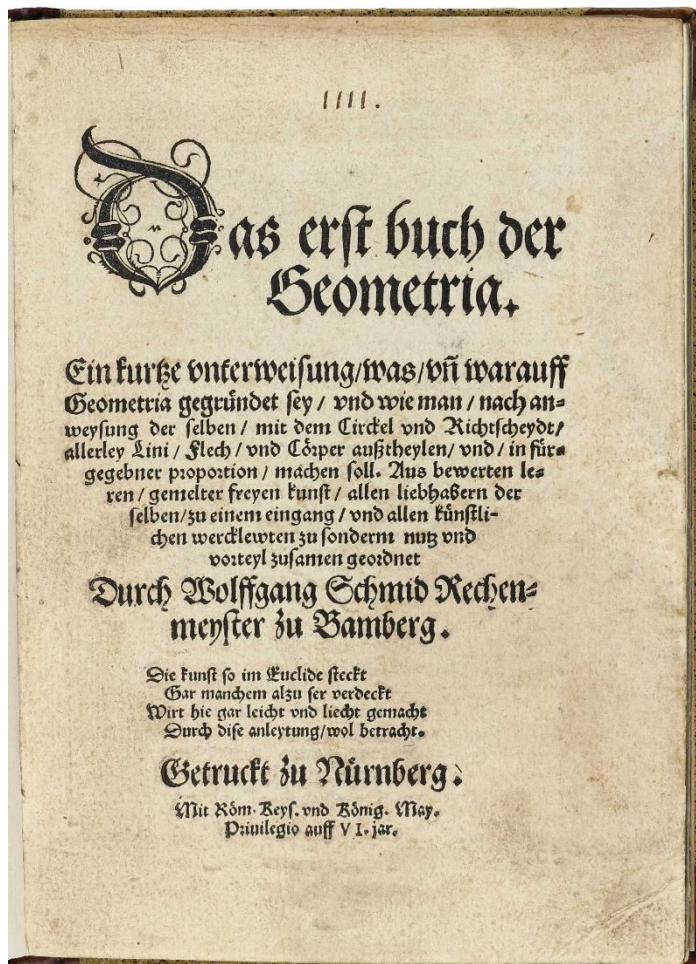 IIII.
Das erst buch der
Geometria.
Ein kurtze vnterweisung/was/vñ warauff
Geometria gegründet sey / vnd wie man / nach an=
weysung der selben / mit dem Circkel vnd Richtscheydt/
allerley Lini / Flech / vnd Cörper außtheylen/ vnd / in für=
gegebner proportion / machen soll. Aus bewerten le=
ren / gemelter freyen kunst / allen liebhabern der
selben/zu einem eingang / vnd allen künstli=
chen wercklewten zu sonderm nutz vnd
vorteyl zusamen geordnet
Durch Wolffgang Schmid Rechen=
meyster zu Bamberg.
Die kunst so im Euclide steckt
Gar manchem alzu ser verdeckt
Wirt hie gar leicht vnd liecht gemacht
Durch dise anleytung/wol betracht.
Getruckt zu Nürnberg.
Mit Röm. Keys. vnd König. May.
Priuilegio auff VI. jar.